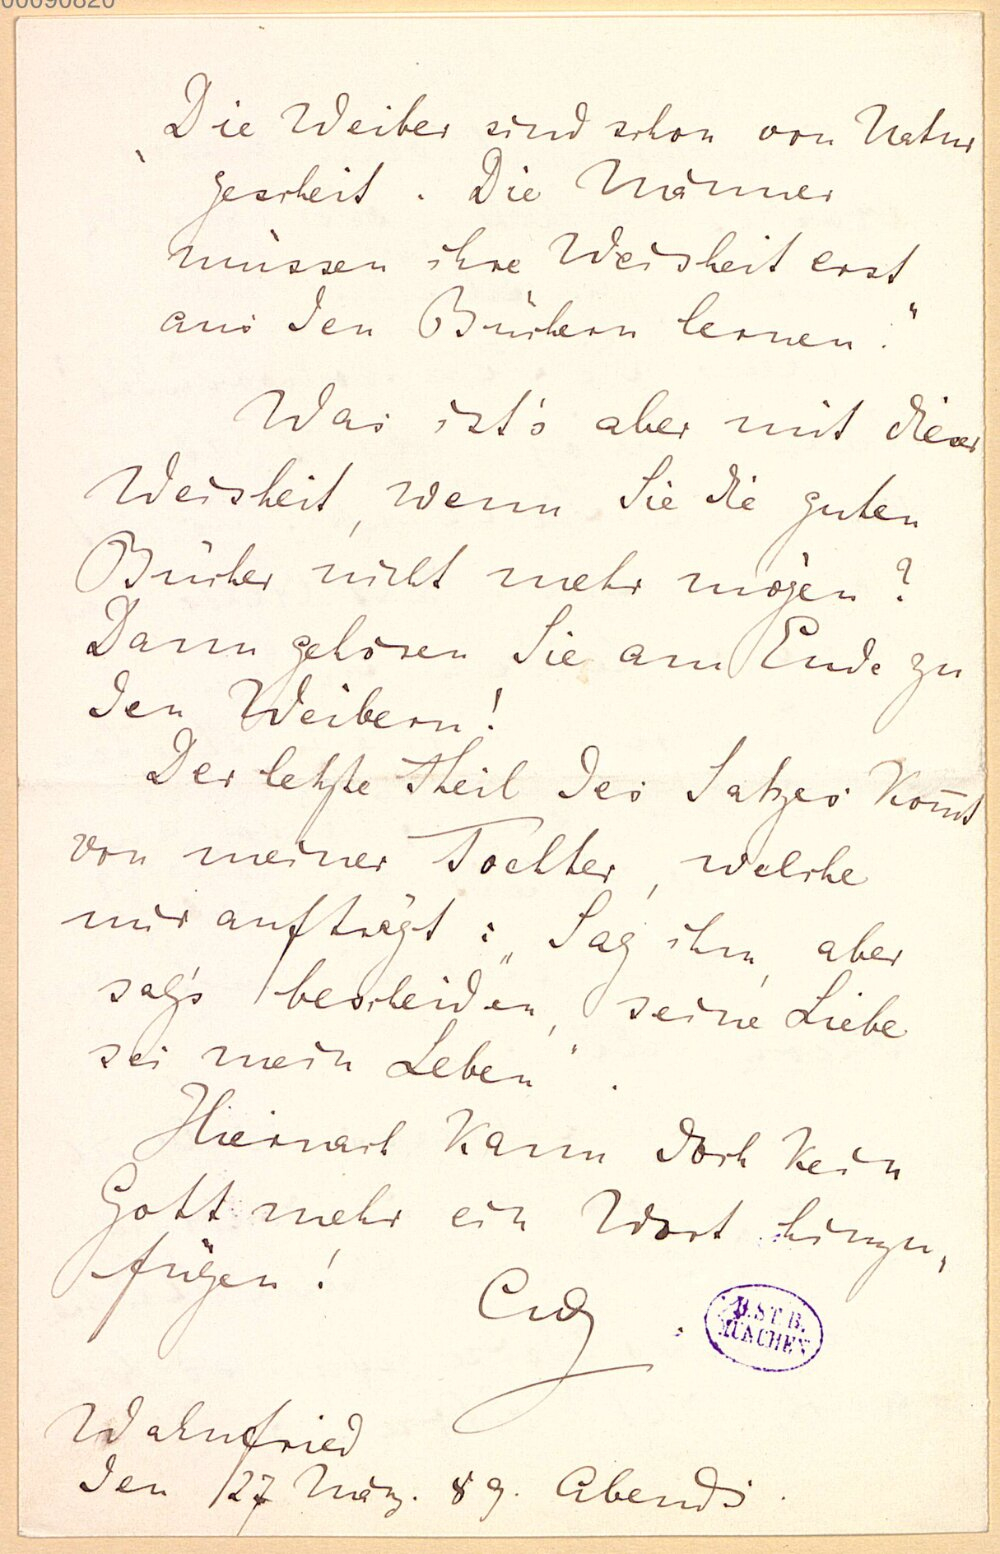 00690820
„Die Weiber sind schon von Natur
gescheit. Die Männer
müssen ihre Weisheit erst
aus den Büchern lernen."
Was ist's aber mit dieser
Weisheit, wenn Sie die guten
Bücher nicht mehr mögen?
Dann gehören Sie am Ende zu
den Weibern!
Der letzte Theil des Satzes kom̄t
von meiner Tochter, welche
mir aufträgt: „Sag ihm, aber
sag's bescheiden, seine Liebe
sei mein Leben".
Hiernach kann doch kein
Gott mehr ein Wort hinzu-
fügen!
B.ST.B.
MÜNCHEN
Wahnfried
den 27 März. 89. Abends.